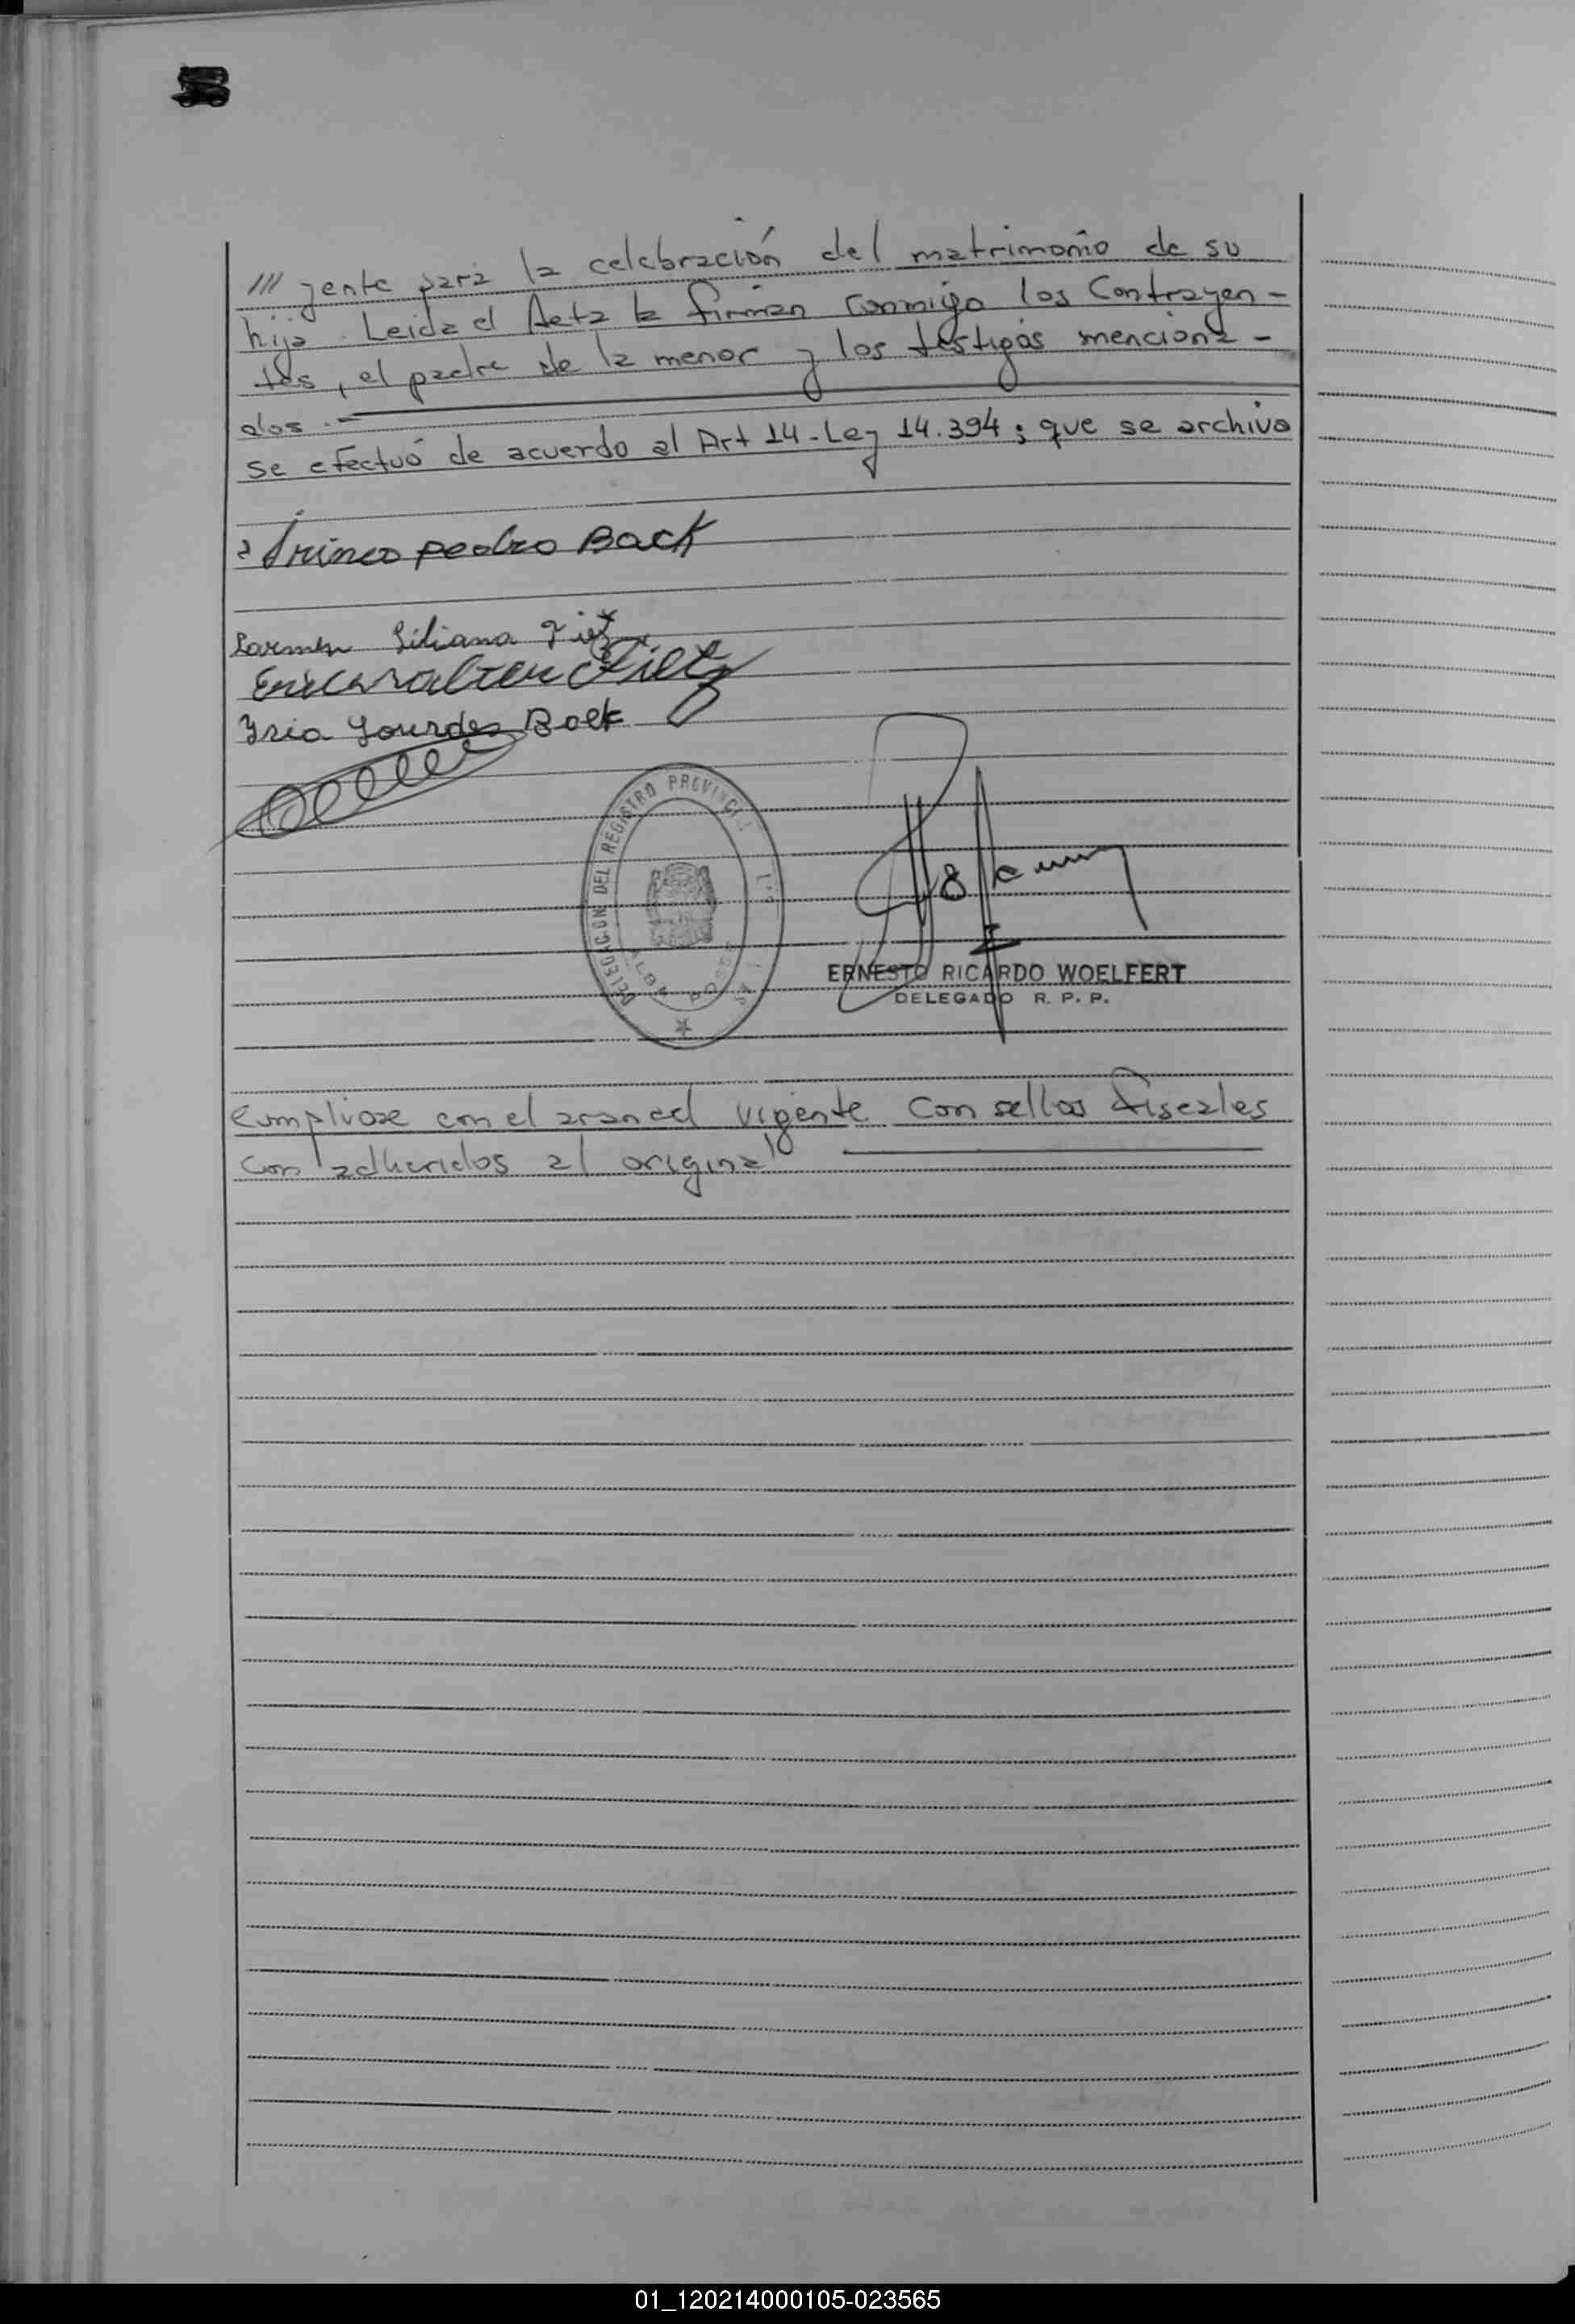 /// gente para la celebración del matrimonio de su
hija. Leida el Acta la firman conmigo los Contrayen-
tes, el padre de la menor y los testigos menciona-
dos.-
se efectuó de acuerdo al Art 14-Ley 14.394; que se archiva
Irineo pedro Back
Carmen Liliana Fietz
Eric Walter Fietz
Iria Lourdes Back
DELEGACION DEL REGISTRO PROVINCIAL
ALBA POSSE
ERNESTO RICARDO WOELFERT
DELEGADO R. P. P.
Cumpliose con el arancel vigente con sellos fiscales
con adheridos al original
01_120214000105-023565